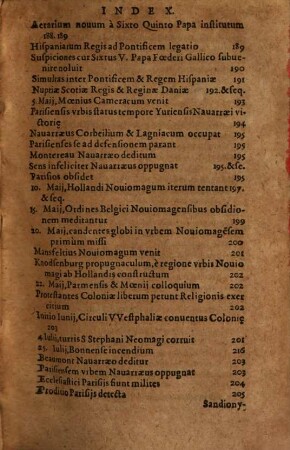 INDEX.
Aerarium nouum à Sixto Quinto Papa institutum
188. 189
Hispaniarum Regis ad Pontificem legatio 189
Suspiciones cur Sixtus V. Papa Fœderi Gallico subue-
nire noluit 190
Simultas inter Pontificem & Regem Hispaniæ 191
Nuptiæ Scotiæ Regis & Reginæ Daniæ 192.&seq.
5 Maij, Mœnius Cameracum venit 193
Parisiensis vrbis status tempore Yuriensis Nauarræi vi-
ctorię 194
Nauarræus Corbeilium & Lagniacum occupat 195
Parisienses se ad defensionem parant 195
Montereau Nauarræo deditum 195
Sens infeliciter Nauarræus oppugnat 195.&se.
Parisios obsidet 195
10. Maij, Hollandi Nouiomagum iterum tentant 197.
& seq.
15. Maij, Ordines Belgici Nouiomagensibus obsidio-
nem meditantur 199
20. Maij, candentes globi in vrbem Nouiomagēsem
primùm missi 200
Mansfeltius Nouiomagum venit 201
Knodsenburg propugnaculum, è regione vrbis Nouio
magi ab Hollandis constructum 202
22. Maij, Parmensis & Mœnij colloquium 202
Protestantes Coloniæ liberum petunt Religionis exer
citium 202
Iunio Iunij, Circuli VVestphaliæ conuentus Colonię
201
4 Iulij, turris S Stephani Neomagi corruit 201
23. Iulij, Bonnense incendium 216
Beaumont Nauarræo deditur 203
Parisiensem vrbem Nauarræus oppugnat 203
Ecclesiastici Parisijs fiunt milites 204
Proditio Parisijs detecta 205
Sandiony-